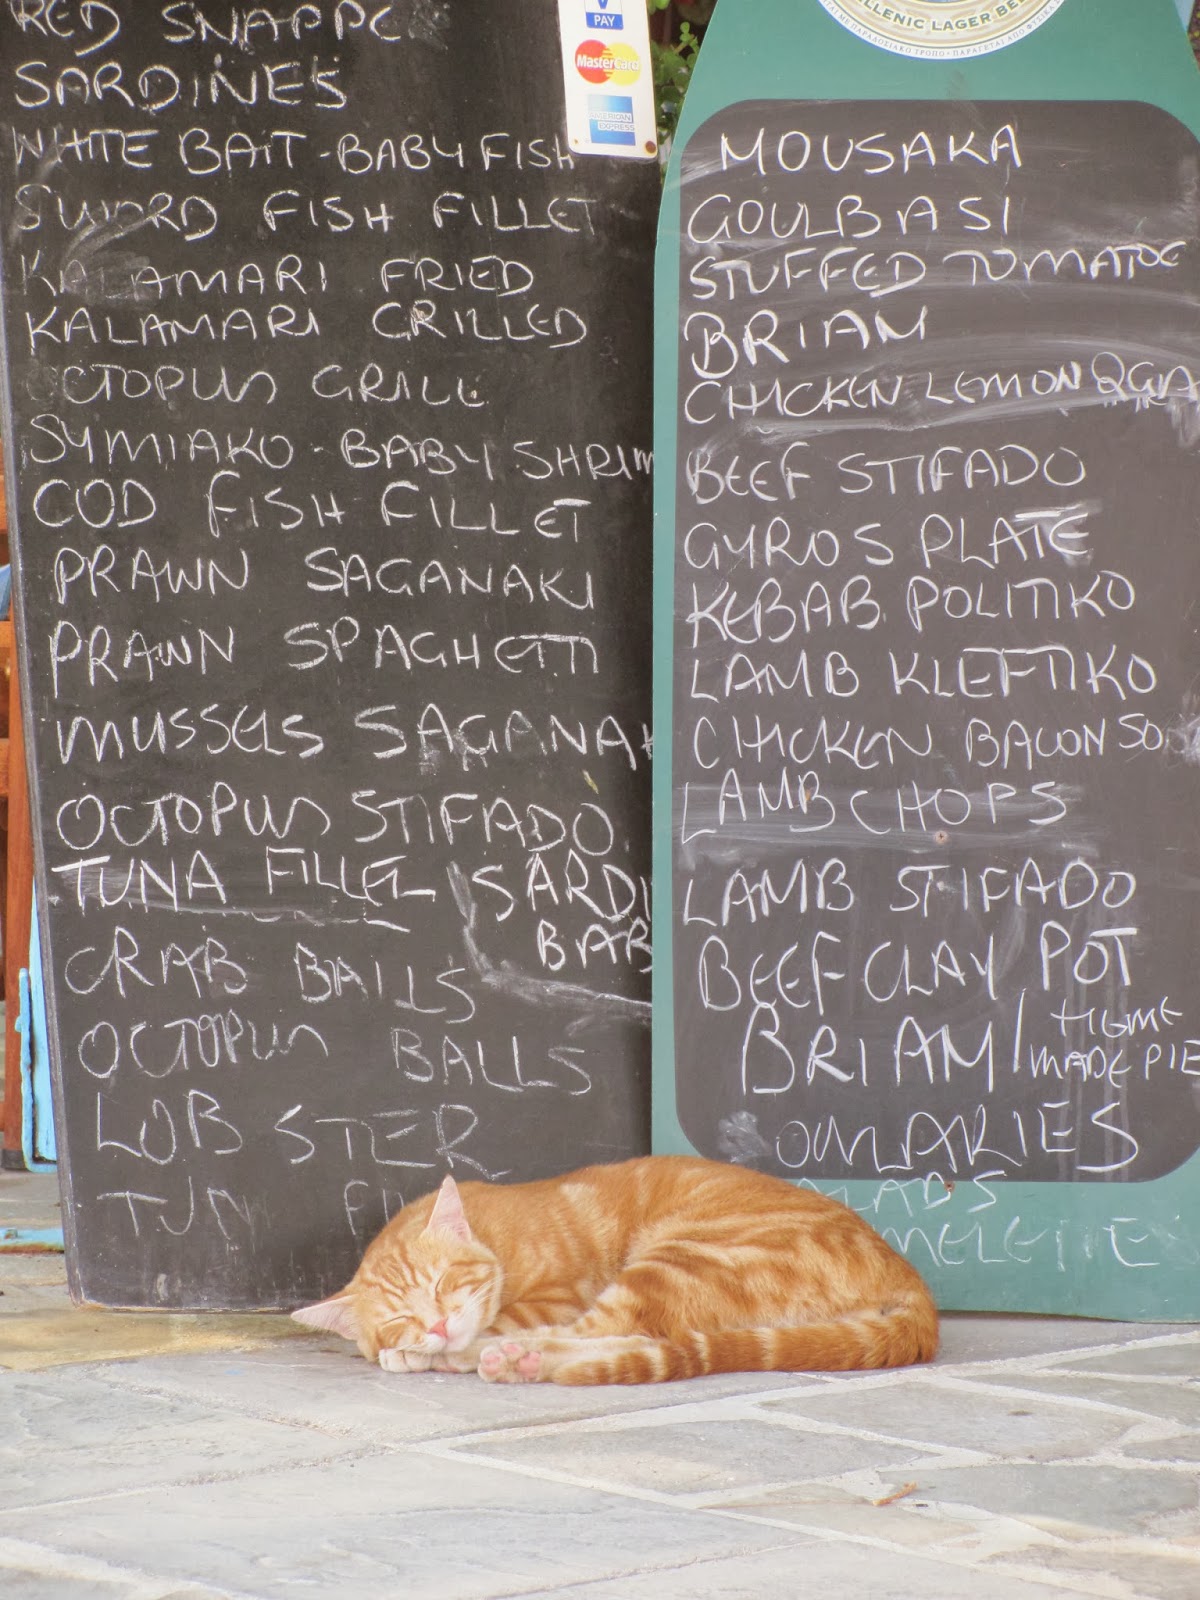 RED SNAPPE
SARDINES
WHITE BAIT - BABY FISH
SWORD FISH FILLET
KALAMARI FRIED
KALAMARI GRILLED
OCTOPUS GRILL
SYMIAKO - BABY SHRIM
COD FISH FILLET
PRAWN SAGANAKI
PRAWN SPAGHETTI
MUSSELS SAGANAK
OCTOPUS STIFADO
TUNA FILLET SARDI
BAB
CRAB BALLS
OCTOPUS BALLS
LOBSTER
TUN FI
V
PAY
MasterCard
AMERICAN
EXPRESS
LLENIC LAGER BEE
ΜΕ ΠΑΡΑΔΟΣΙΑΚΟ ΤΡΟΠΟ • ΠΑΡΑΓΕΤΑΙ ΑΠΟ ΦΥΣΙΚ
MOUSAKA
GOULBASI
STUFFED TOMATOE
BRIAM
CHICKEN LEMON
BEEF STIFADO
GYROS PLATE
KEBAB POLITIKO
LAMB KLEFTIKO
CHICKEN BACON SO
LAMB CHOPS
LAMB STIFADO
BEEF CLAY POT
BRIAM / HOME
MADE PIE
ALADS
MELETTE